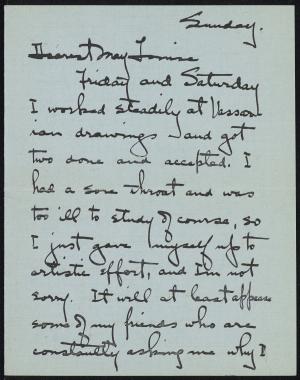 Sunday.
Dearest May Louise
Friday and Saturday
I worked steadily at Vassar-
ian drawings and got
two done and accepted. I
had a sore throat and was
too ill to study of course, so
I just gave myself up to
artistic effort, and I'm not
sorry. It will at least appease
some of my friends who are
constantly asking me why I